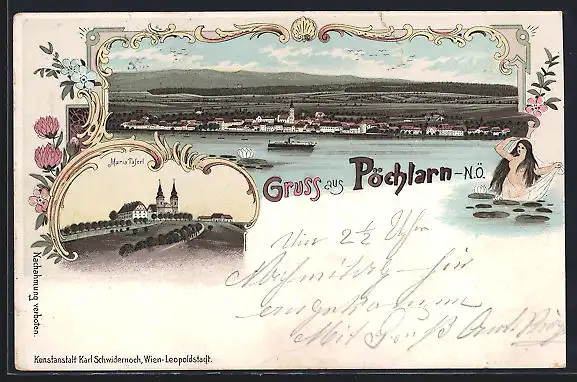 Maria Taferl
Gruss aus Pöchlarn – N.Ö.
Um 2½ Uhr
Nachmittag hier
angekommen
Mit Gruß
Nachahmung verboten.
Kunstanstalt Karl Schwidernoch, Wien-Leopoldstadt.